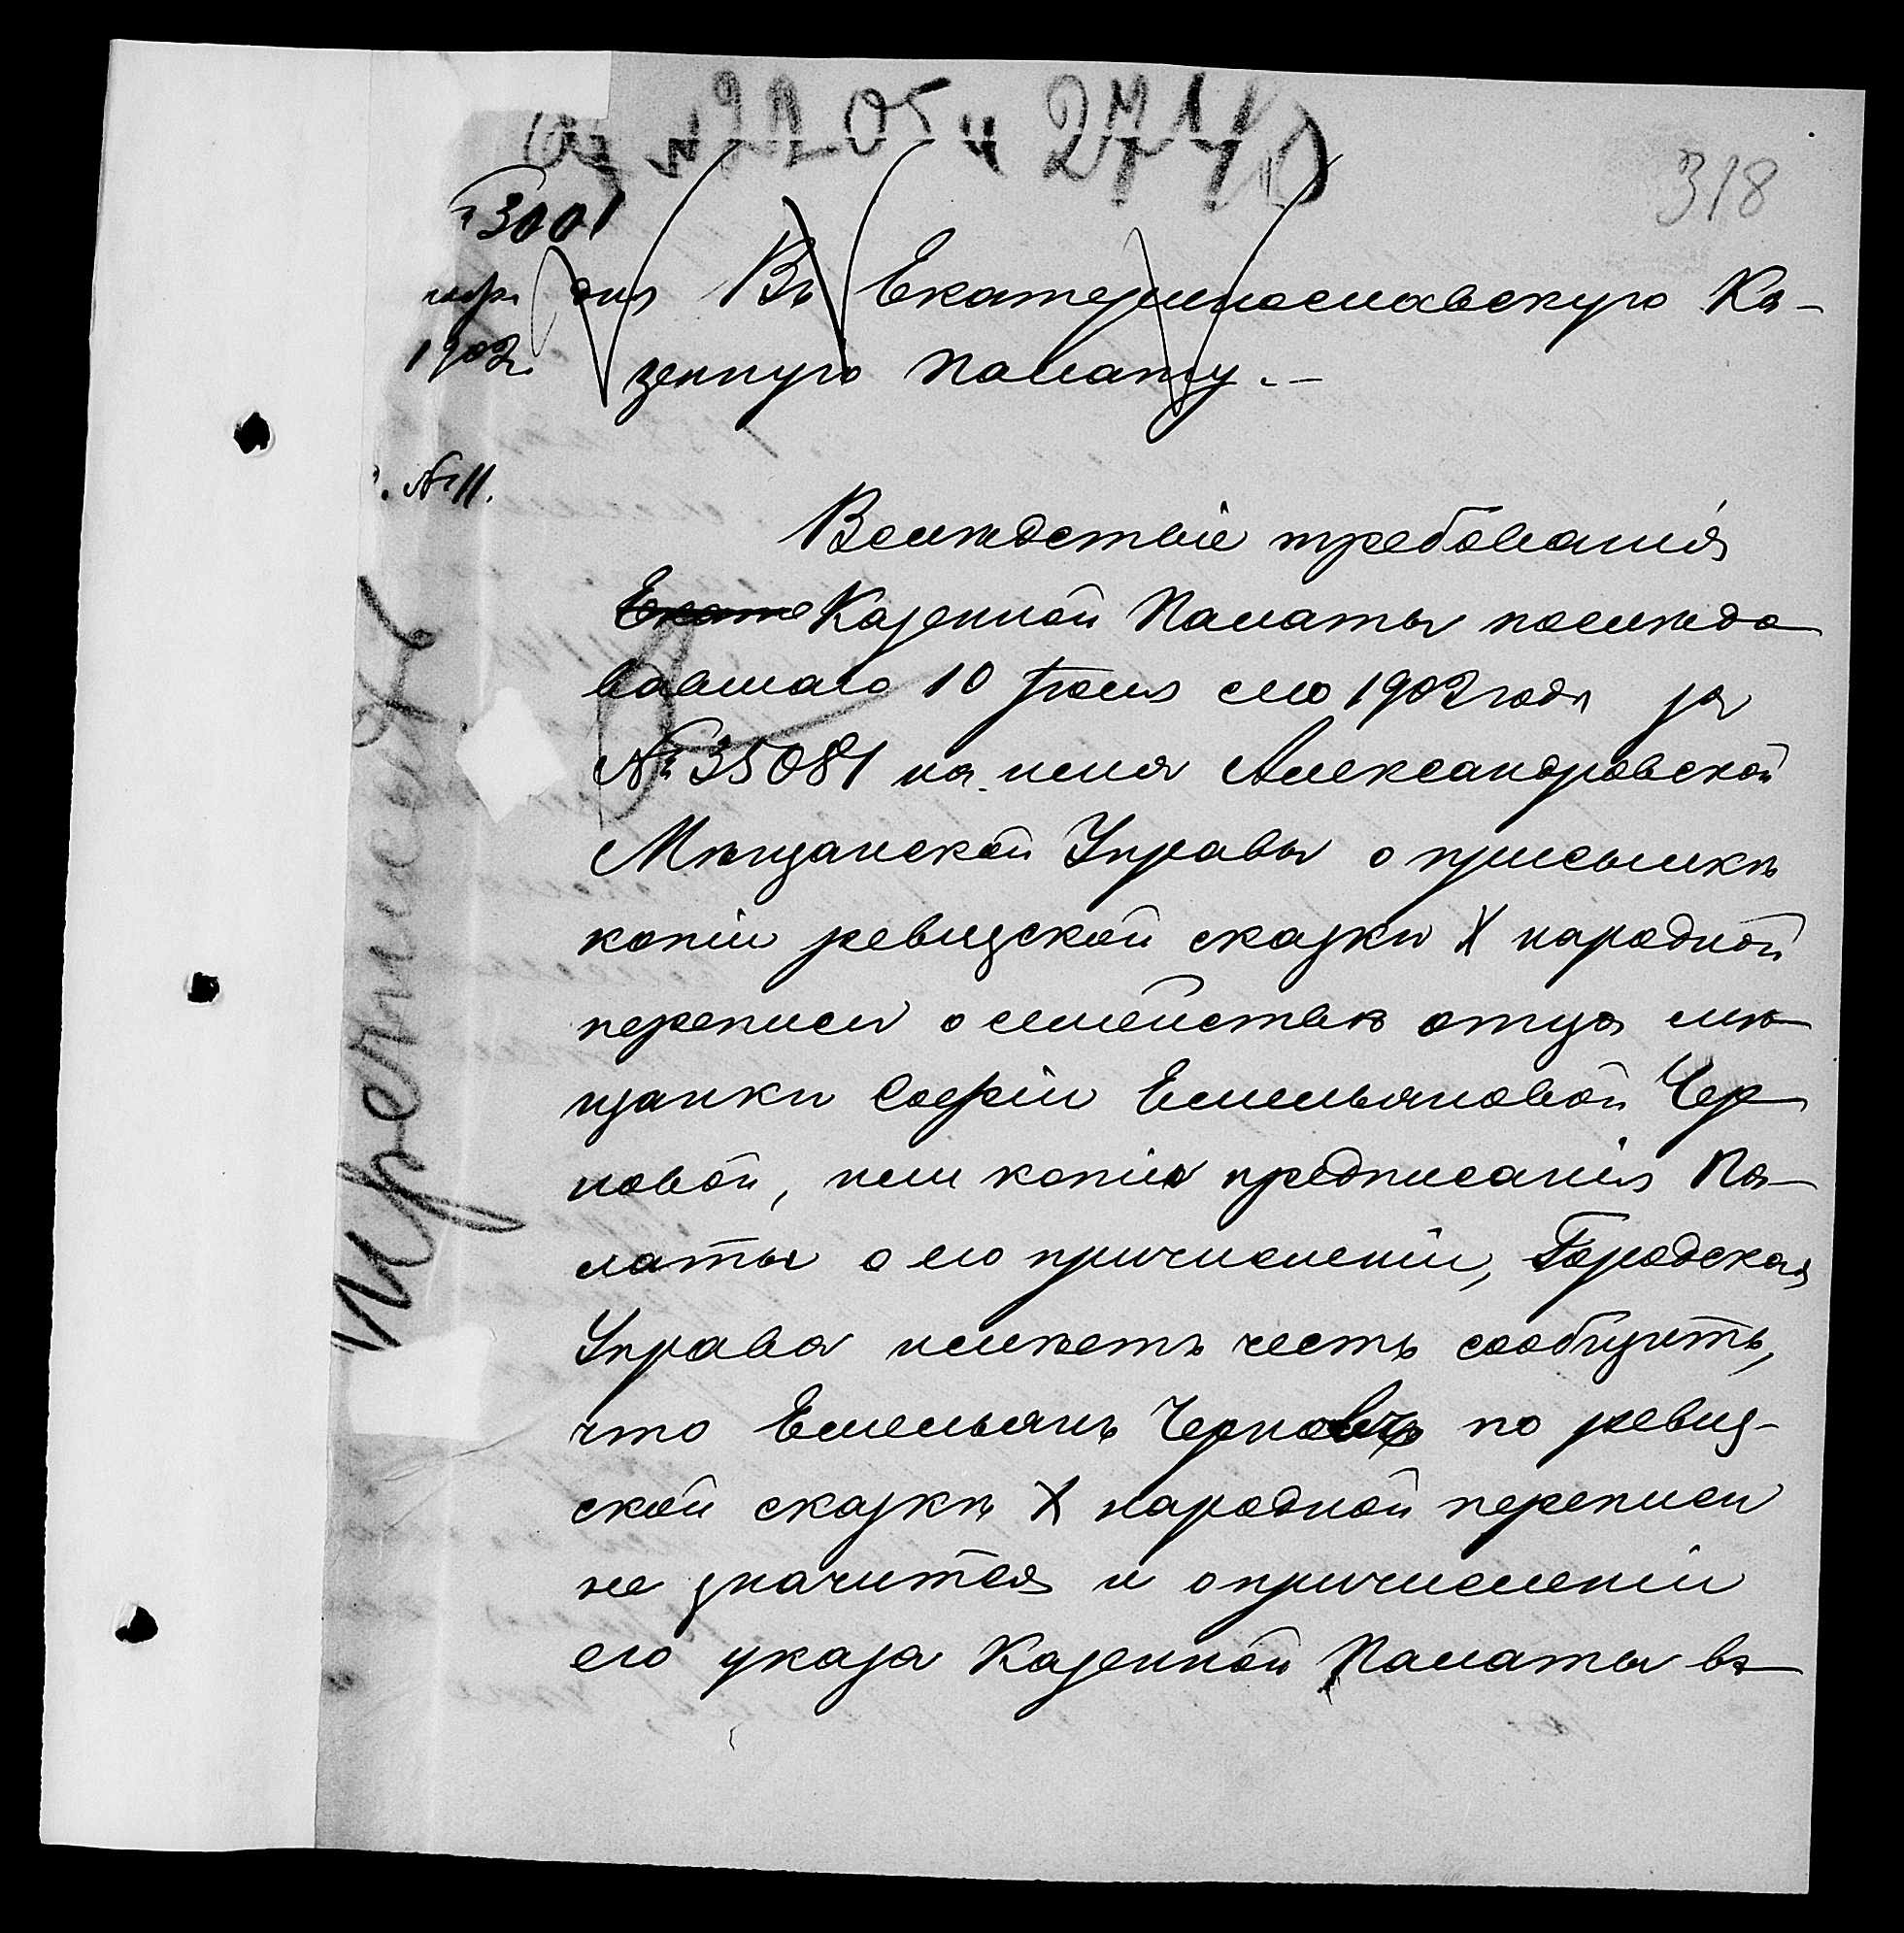 № 2205 и 2771
318
3001
дня Въ Екатеринославскую Ка-
1902.
зенную Палату.-
№ 11.
Вслѣдствіе требованія
Екате Казенной Палаты послѣдо
вавшаго 10 Іюля сего 1902 года за
№ 35081 на имя Александровской
Мѣщанской Управы о присылкѣ
копіи ревизской сказки X народной
переписи о семействѣ отца мѣ-
щанки Софіи Емельяновой Чер
новой, или копіи предписанія Па-
латы о его причисленіи, Городская
Управа имѣетъ честь сообщить,
что Емельянъ Черновъ по ревиз-
ской сказкѣ X народной переписи
не значится и о причисленіи
его указа Казенной Палаты въ